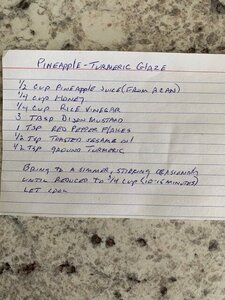 PINEAPPLE-TURMERIC GLAZE
1/2 CUP PINEAPPLE JUICE (FROM A CAN)
1/4 CUP HONEY
1/4 CUP RICE VINEGAR
3 TBSP DIJON MUSTARD
1 TSP RED PEPPER FLAKES
1/2 TSP TOASTED SESAME OIL
1/2 TSP GROUND TURMERIC
BRING TO A SIMMER, STIRRING OCASIONALLY
UNTIL REDUCED TO 3/4 CUP (10-15 MINUTES)
LET COOL